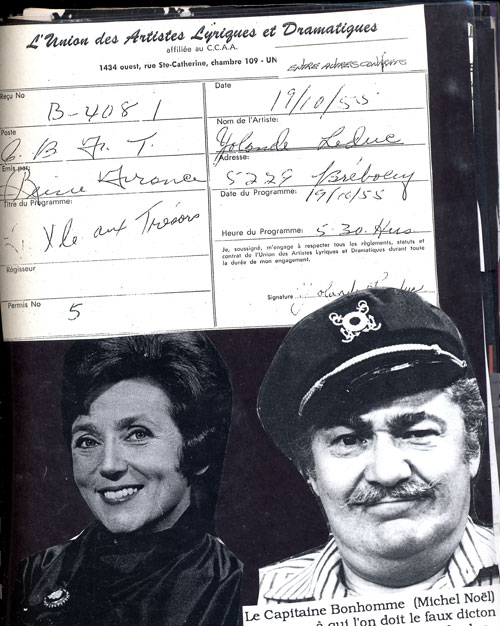 L'Union des Artistes Lyriques et Dramatiques
affiliée au C.C.A.A.
1434 ouest, rue Ste-Catherine, chambre 109 - UN
ENTRE AUTRES CONTRATS
Reçu No
B-4081
Poste
C B F T.
Emis par:
France
Titre du Programme:
Ile aux Trésors
Régisseur
Permis No
5
Date
19/10/55
Nom de l'Artiste:
Yolande Leduc
Adresse:
5228 Brébœuf
Date du Programme: 19/10/55
Heure du Programme: 5.30 Hrs
Je, soussigné, m'engage à respecter tous les règlements, statuts et
contrat de l'Union des Artistes Lyriques et Dramatiques durant toute
la durée de mon engagement.
Signature Yolande Leduc
Le Capitaine Bonhomme (Michel Noël)
à qui l'on doit le faux dicton